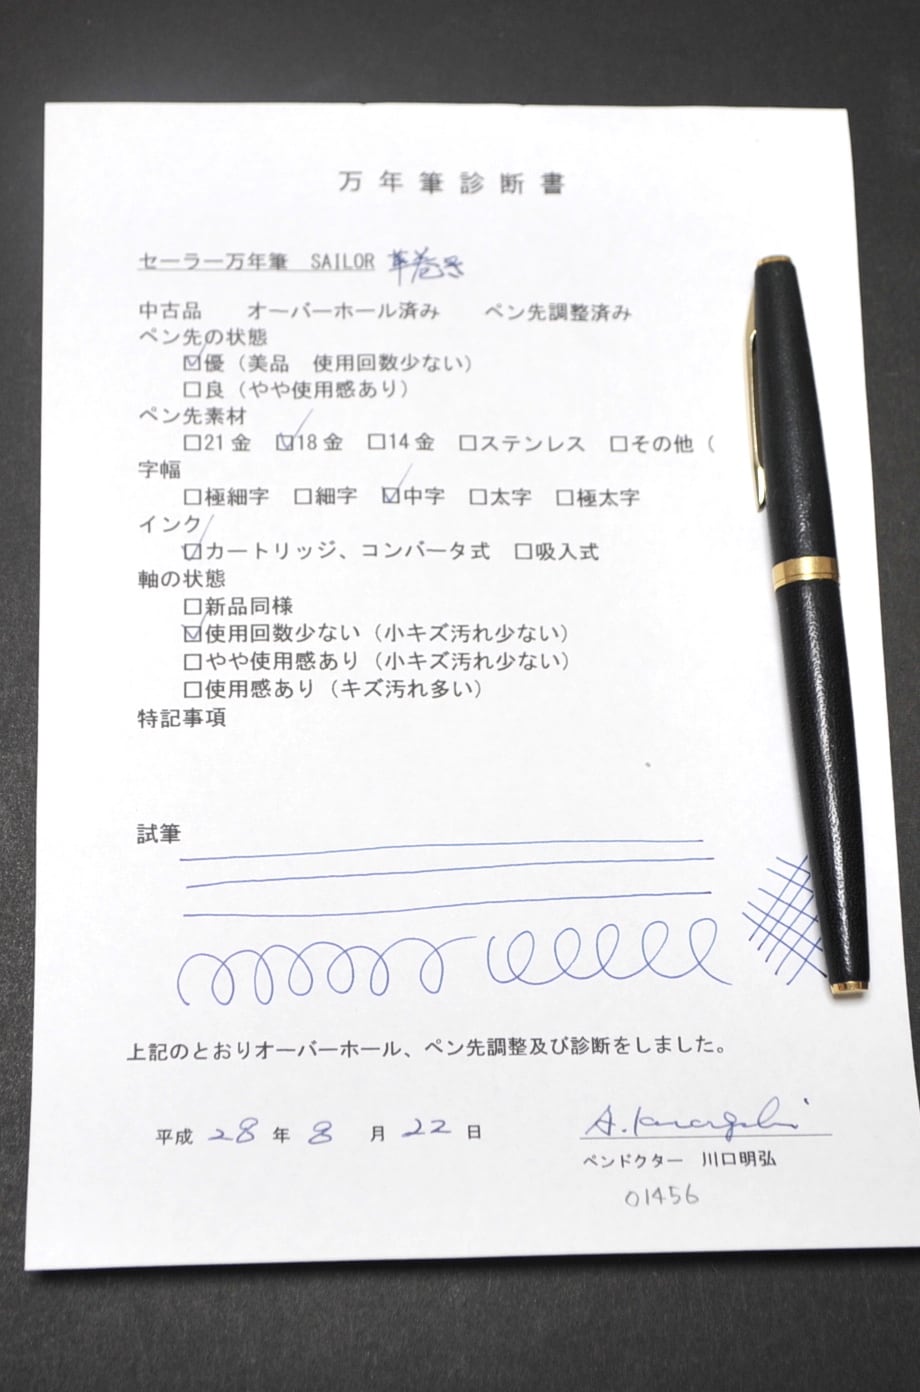 万年筆診断書
セーラー万年筆　SAILOR 革巻き
中古品　　オーバーホール済み　　ペン先調整済み
ペン先の状態
☑優（美品　使用回数少ない）
□良（やや使用感あり）
ペン先素材
□21金　☑18金　□14金　□ステンレス　□その他（
字幅
□極細字　□細字　☑中字　□太字　□極太字
インク
☑カートリッジ、コンバータ式　□吸入式
軸の状態
□新品同様
☑使用回数少ない（小キズ汚れ少ない）
□やや使用感あり（小キズ汚れ少ない）
□使用感あり（キズ汚れ多い）
特記事項
試筆
上記のとおりオーバーホール、ペン先調整及び診断をしました。
平成 28 年 8 月 22 日
ペンドクター　川口明弘
01456